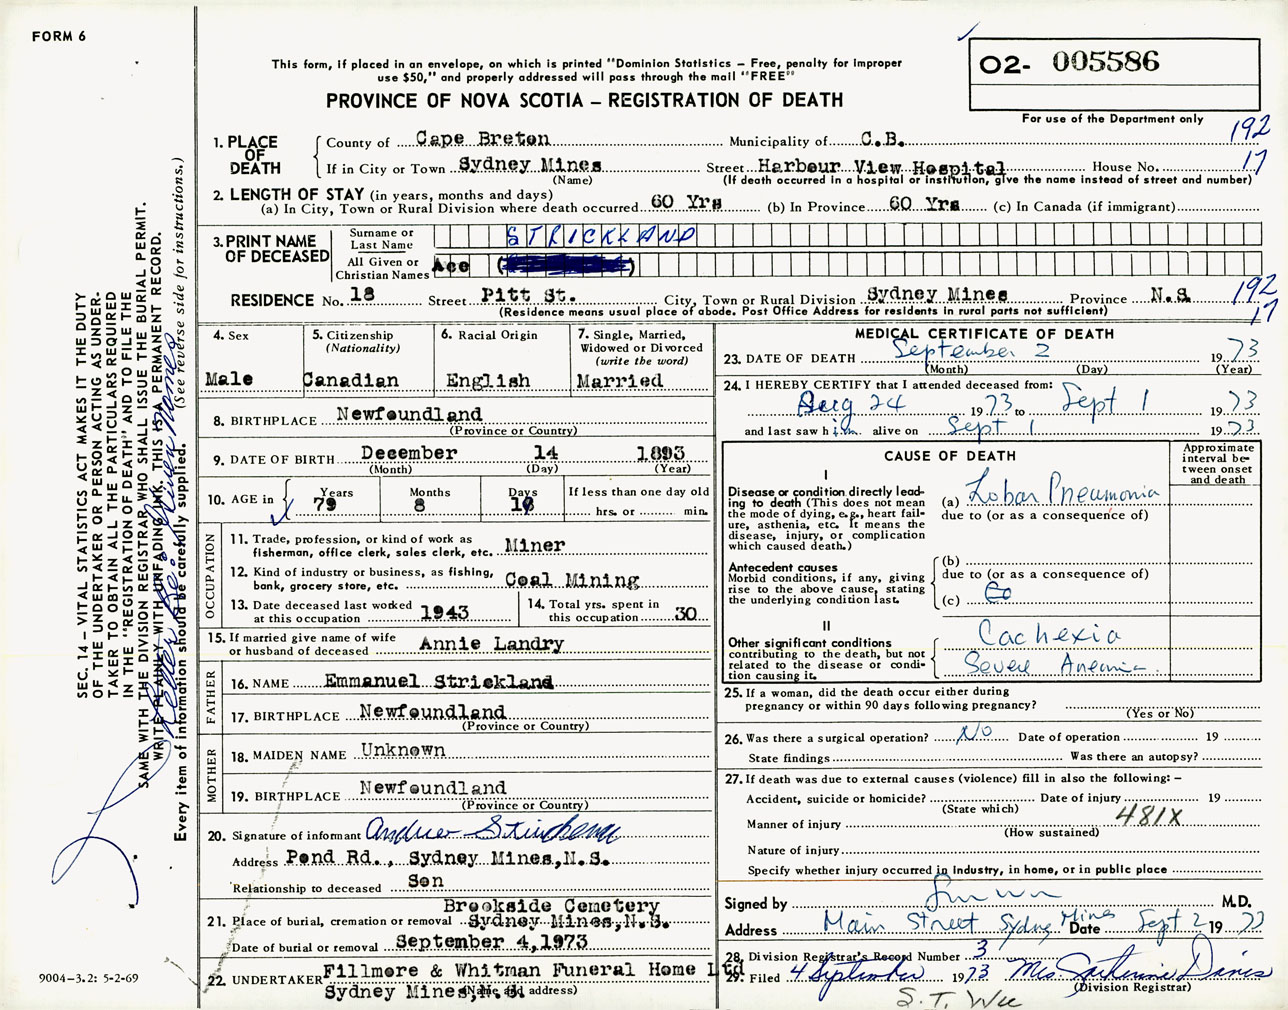 FORM 6
This form, if placed in an envelope, on which is printed "Dominion Statistics – Free, penalty for improper
use $50," and properly addressed will pass through the mail "FREE"
PROVINCE OF NOVA SCOTIA – REGISTRATION OF DEATH
02- 005586
For use of the Department only
192
17
1. PLACE OF DEATH
County of Cape Breton Municipality of C.B.
If in City or Town Sydney Mines Street Harbour View Hospital House No.
(Name) (If death occurred in a hospital or institution, give the name instead of street and number)
2. LENGTH OF STAY (in years, months and days)
(a) In City, Town or Rural Division where death occurred 60 Yrs (b) In Province 60 Yrs (c) In Canada (if immigrant)
3. PRINT NAME OF DECEASED
Surname or Last Name STRICKLAND
All Given or Christian Names Ace ( )
RESIDENCE No. 18 Street Pitt St. City, Town or Rural Division Sydney Mines Province N.S. 192
17
(Residence means usual place of abode. Post Office Address for residents in rural parts not sufficient)
4. Sex
Male
5. Citizenship
(Nationality)
Canadian
6. Racial Origin
English
7. Single, Married,
Widowed or Divorced
(write the word)
Married
8. BIRTHPLACE Newfoundland
(Province or Country)
9. DATE OF BIRTH December 14 1893
(Month) (Day) (Year)
10. AGE in
Years Months Days If less than one day old
79 8 hrs. or min.
OCCUPATION
11. Trade, profession, or kind of work as
fisherman, office clerk, sales clerk, etc. Miner
12. Kind of industry or business, as fishing,
bank, grocery store, etc. Coal Mining
13. Date deceased last worked
at this occupation 1943
14. Total yrs. spent in
this occupation 30
15. If married give name of wife
or husband of deceased Annie Landry
FATHER
16. NAME Emmanuel Strickland
17. BIRTHPLACE Newfoundland
(Province or Country)
MOTHER
18. MAIDEN NAME Unknown
19. BIRTHPLACE Newfoundland
(Province or Country)
20. Signature of informant Andrew Strickland
Address Pond Rd., Sydney Mines, N.S.
Relationship to deceased Son
Brookside Cemetery
21. Place of burial, cremation or removal Sydney Mines, N.S.
Date of burial or removal September 4, 1973
22. UNDERTAKER Fillmore & Whitman Funeral Home Ltd
Sydney Mines, N.S.
(Name and address)
MEDICAL CERTIFICATE OF DEATH
23. DATE OF DEATH September 2 1973
(Month) (Day) (Year)
24. I HEREBY CERTIFY that I attended deceased from:
Aug 24 1973 to Sept 1 1973
and last saw him alive on Sept 1 1973
CAUSE OF DEATH
Approximate
interval be-
tween onset
and death
I
Disease or condition directly lead-
ing to death (This does not mean
the mode of dying, e.g., heart fail-
ure, asthenia, etc. It means the
disease, injury, or complication
which caused death.)
(a) Lobar Pneumonia
due to (or as a consequence of)
Antecedent causes
Morbid conditions, if any, giving
rise to the above cause, stating
the underlying condition last.
(b)
due to (or as a consequence of)
(c)
II
Other significant conditions
contributing to the death, but not
related to the disease or condi-
tion causing it.
Cachexia
Severe Anemia
25. If a woman, did the death occur either during
pregnancy or within 90 days following pregnancy?
(Yes or No)
26. Was there a surgical operation? No Date of operation 19
State findings Was there an autopsy?
27. If death was due to external causes (violence) fill in also the following: –
Accident, suicide or homicide? Date of injury 19
(State which)
Manner of injury 481X
(How sustained)
Nature of injury
Specify whether injury occurred in industry, in home, or in public place
Signed by M.D.
Address Main Street Sydney Mines Date Sept 2 1973
28. Division Registrar's Record Number 3
29. Filed 4 September 1973 Mrs. Catherine Davis
(Division Registrar)
S. T. Wee
SEC. 14 – VITAL STATISTICS ACT MAKES IT THE DUTY
OF THE UNDERTAKER OR PERSON ACTING AS UNDER-
TAKER TO OBTAIN ALL THE PARTICULARS REQUIRED
IN THE "REGISTRATION OF DEATH" AND TO FILE THE
SAME WITH THE DIVISION REGISTRAR WHO SHALL ISSUE THE BURIAL PERMIT.
WRITE PLAINLY WITH UNFADING INK. THIS IS A PERMANENT RECORD.
Every item of information should be carefully supplied. (See reverse side for instructions.)
9004–3.2: 5-2-69